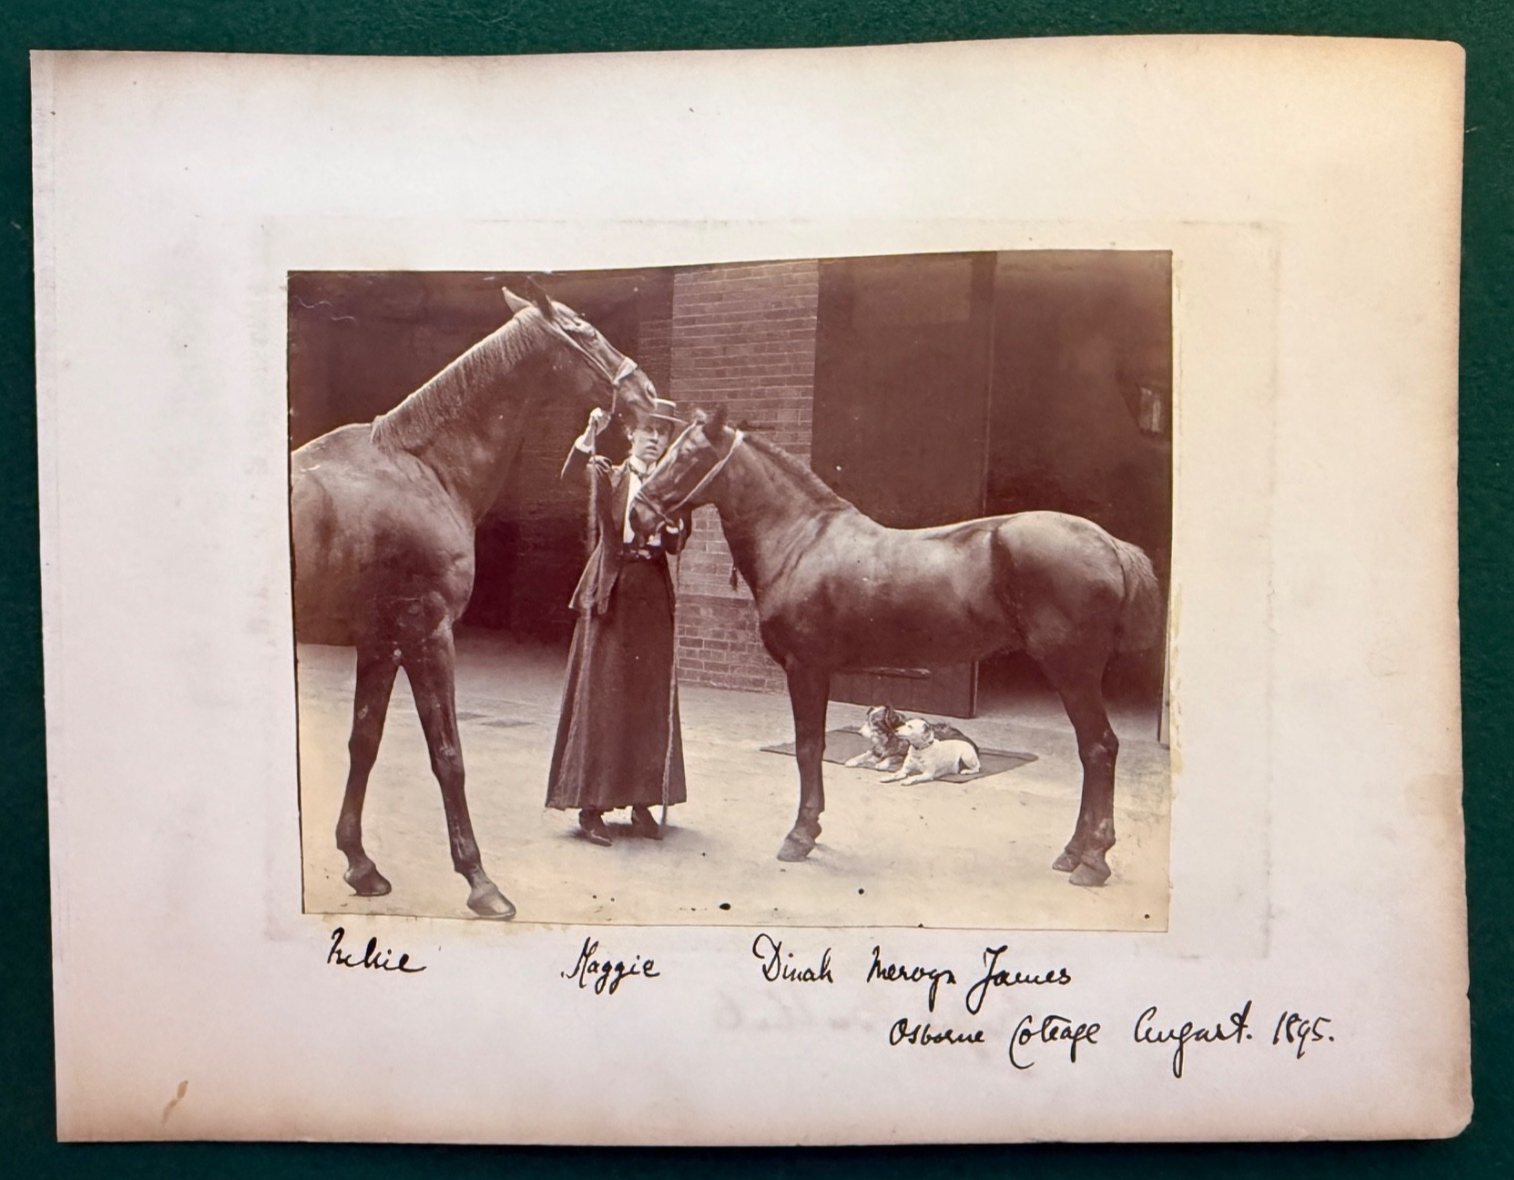 Maggie Dinah Mervyn James
Osborne Cottage August. 1895.